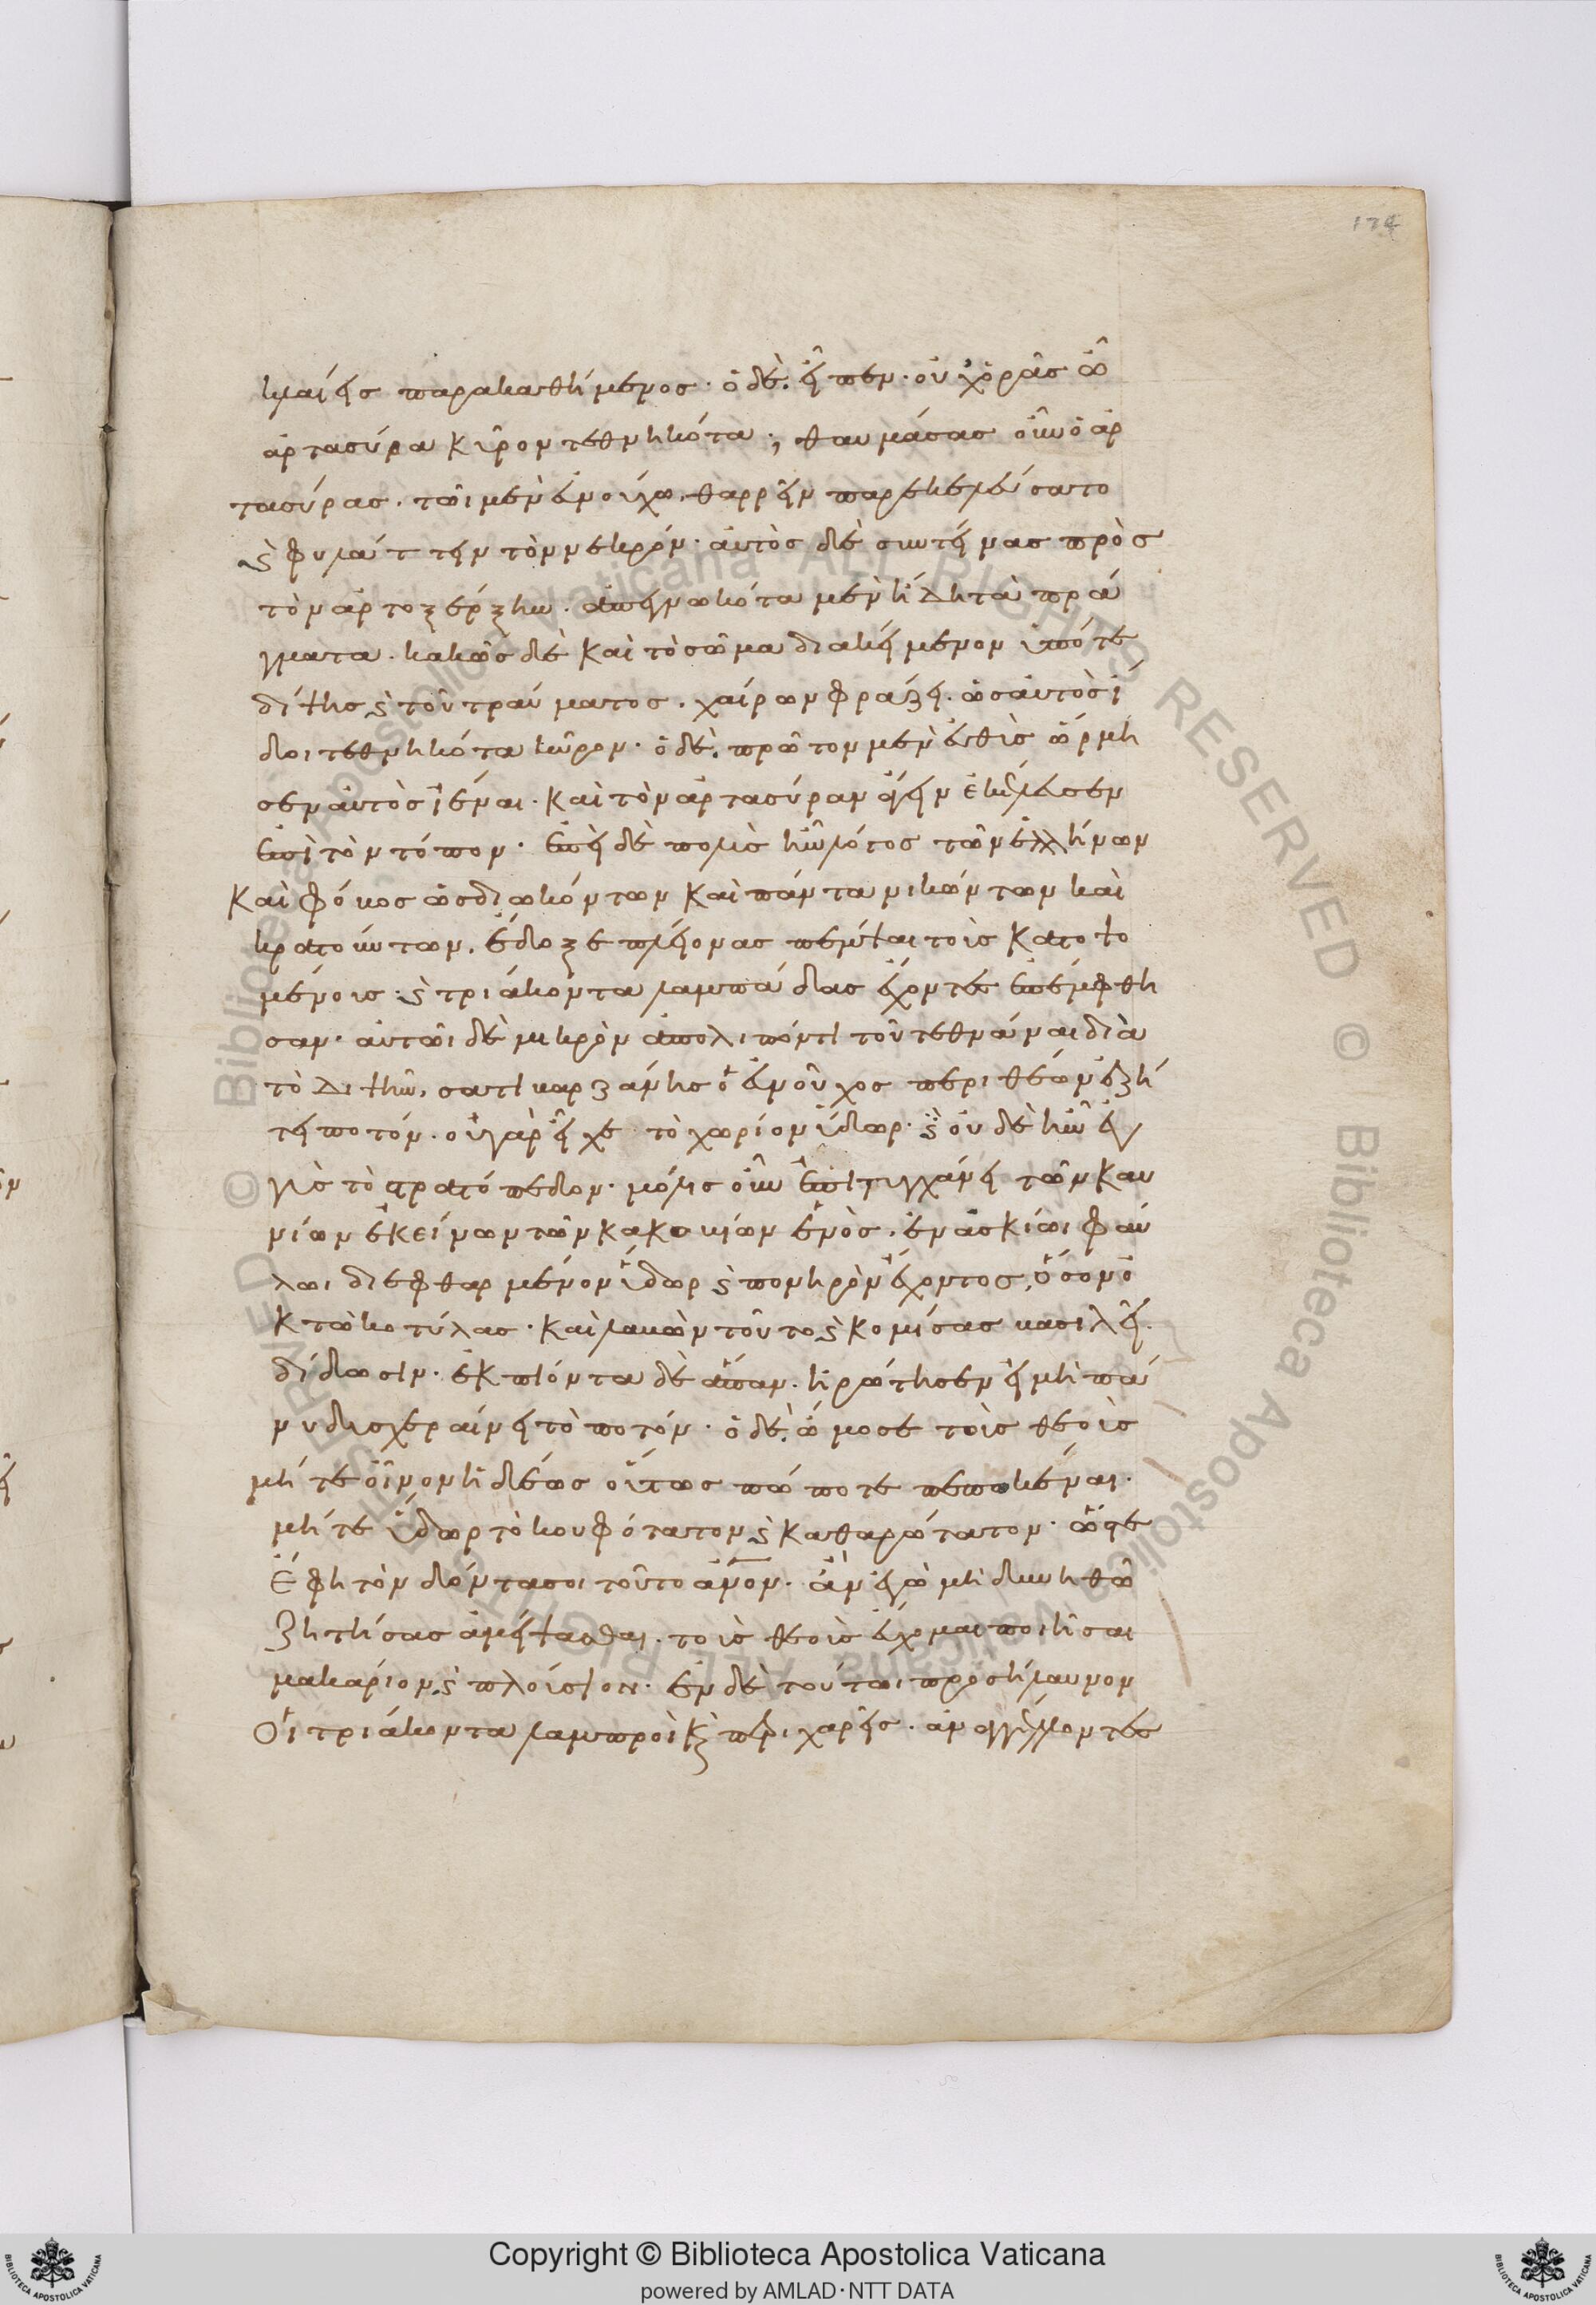 174
κλαίεις παρακαθήμενος· ὁ δὲ, εἶπεν· οὐχ ὁρᾶς ὦ
ἀρτασύρα κῦρον τεθνηκότα; θαυμάσας οὖν ὁ ἀρ
τασύρας, τῶι μὲν εὐνούχω, θαρρεῖν παρεκελεύσατο
ϗ φυλάττειν τὸν νεκρόν· αὐτὸς δὲ συντείνας πρὸς
τὸν ἀρτοξέρξην, ἀπεγνωκότα μὲν ἤδη τὰ πρά
γματα, κακῶς δὲ καὶ τὸ σῶμα διακείμενον ὑπό τε
δίψης ϗ τοῦ τραύματος, χαίρων φράζει, ὡς αὐτὸς ἴ
δοι τεθνηκότα κῦρον· ὁ δὲ, πρῶτον μὲν εὐθὺς ὥρμη
σεν αὐτὸς ἰέναι· καὶ τὸν ἀρτασύραν ἄγειν ἐκέλευσεν
ἐπὶ τὸν τόπον· ἐπεὶ δὲ πολὺς ἦν λόγος τῶν ἑλλήνων
καὶ φόβος ὡς διωκόντων καὶ πάντα νικώντων καὶ
κρατούντων, ἔδοξε πλείονας πέμψαι τοὺς κατοψο
μένους· ϗ τριάκοντα λαμπάδας ἔχοντες ἐπέμφθη
σαν· αὐτῶι δὲ μικρὸν ἀπολιπόντι τοῦ τεθνάναι διὰ
τὸ διψῆν, σατιβαρζάνης ὁ εὐνοῦχος περιθέων ἐζή
τει ποτόν· οὐ γὰρ εἶχε τὸ χωρίον ὕδωρ· ϗ οὐδὲ ἦν ἐγ
γὺς τὸ στρατόπεδον· μόλις οὖν ἐπιτυγχάνει τῶν καυ
νίων ἐκείνων τῶν κακοβίων ἑνὸς, ἐν ἀσκίωι φαύ
λωι διεφθαρμένον ὕδωρ ϗ πονηρὸν ἔχοντος, ὅσον ὀ
κτὼ κοτύλας· καὶ λαβὼν τοῦτο ϗ κομίσας βασιλεῖ
δίδωσιν· ἐκπιόντα δὲ ἅπαν, ἠρώτησεν εἰ μὴ πά
νυ δυσχεραίνει τὸ ποτόν· ὁ δὲ, ὤμοσε τοὺς θεοὺς
μήτε οἶνον ἡδέως οὕτως πώποτε πεπωκέναι.
μήτε ὕδωρ τὸ κουφότατον ϗ καθαρώτατον· ὥστε
ἔφη τὸν δόντα σοι τοῦτο ἄνον· ἂν ἐγὼ μὴ δυνηθῶ
ζητήσας ἀμείψασθαι, τοὺς θεοὺς εὔχομαι ποιῆσαι
μακάριον ϗ πλούσιον· ἐν δὲ τούτωι προσήλαυνον
οἱ τριάκοντα λαμπροὶ ϗ περιχαρεῖς, ἀναγγέλλοντες
Copyright © Biblioteca Apostolica Vaticana
powered by AMLAD·NTT DATA